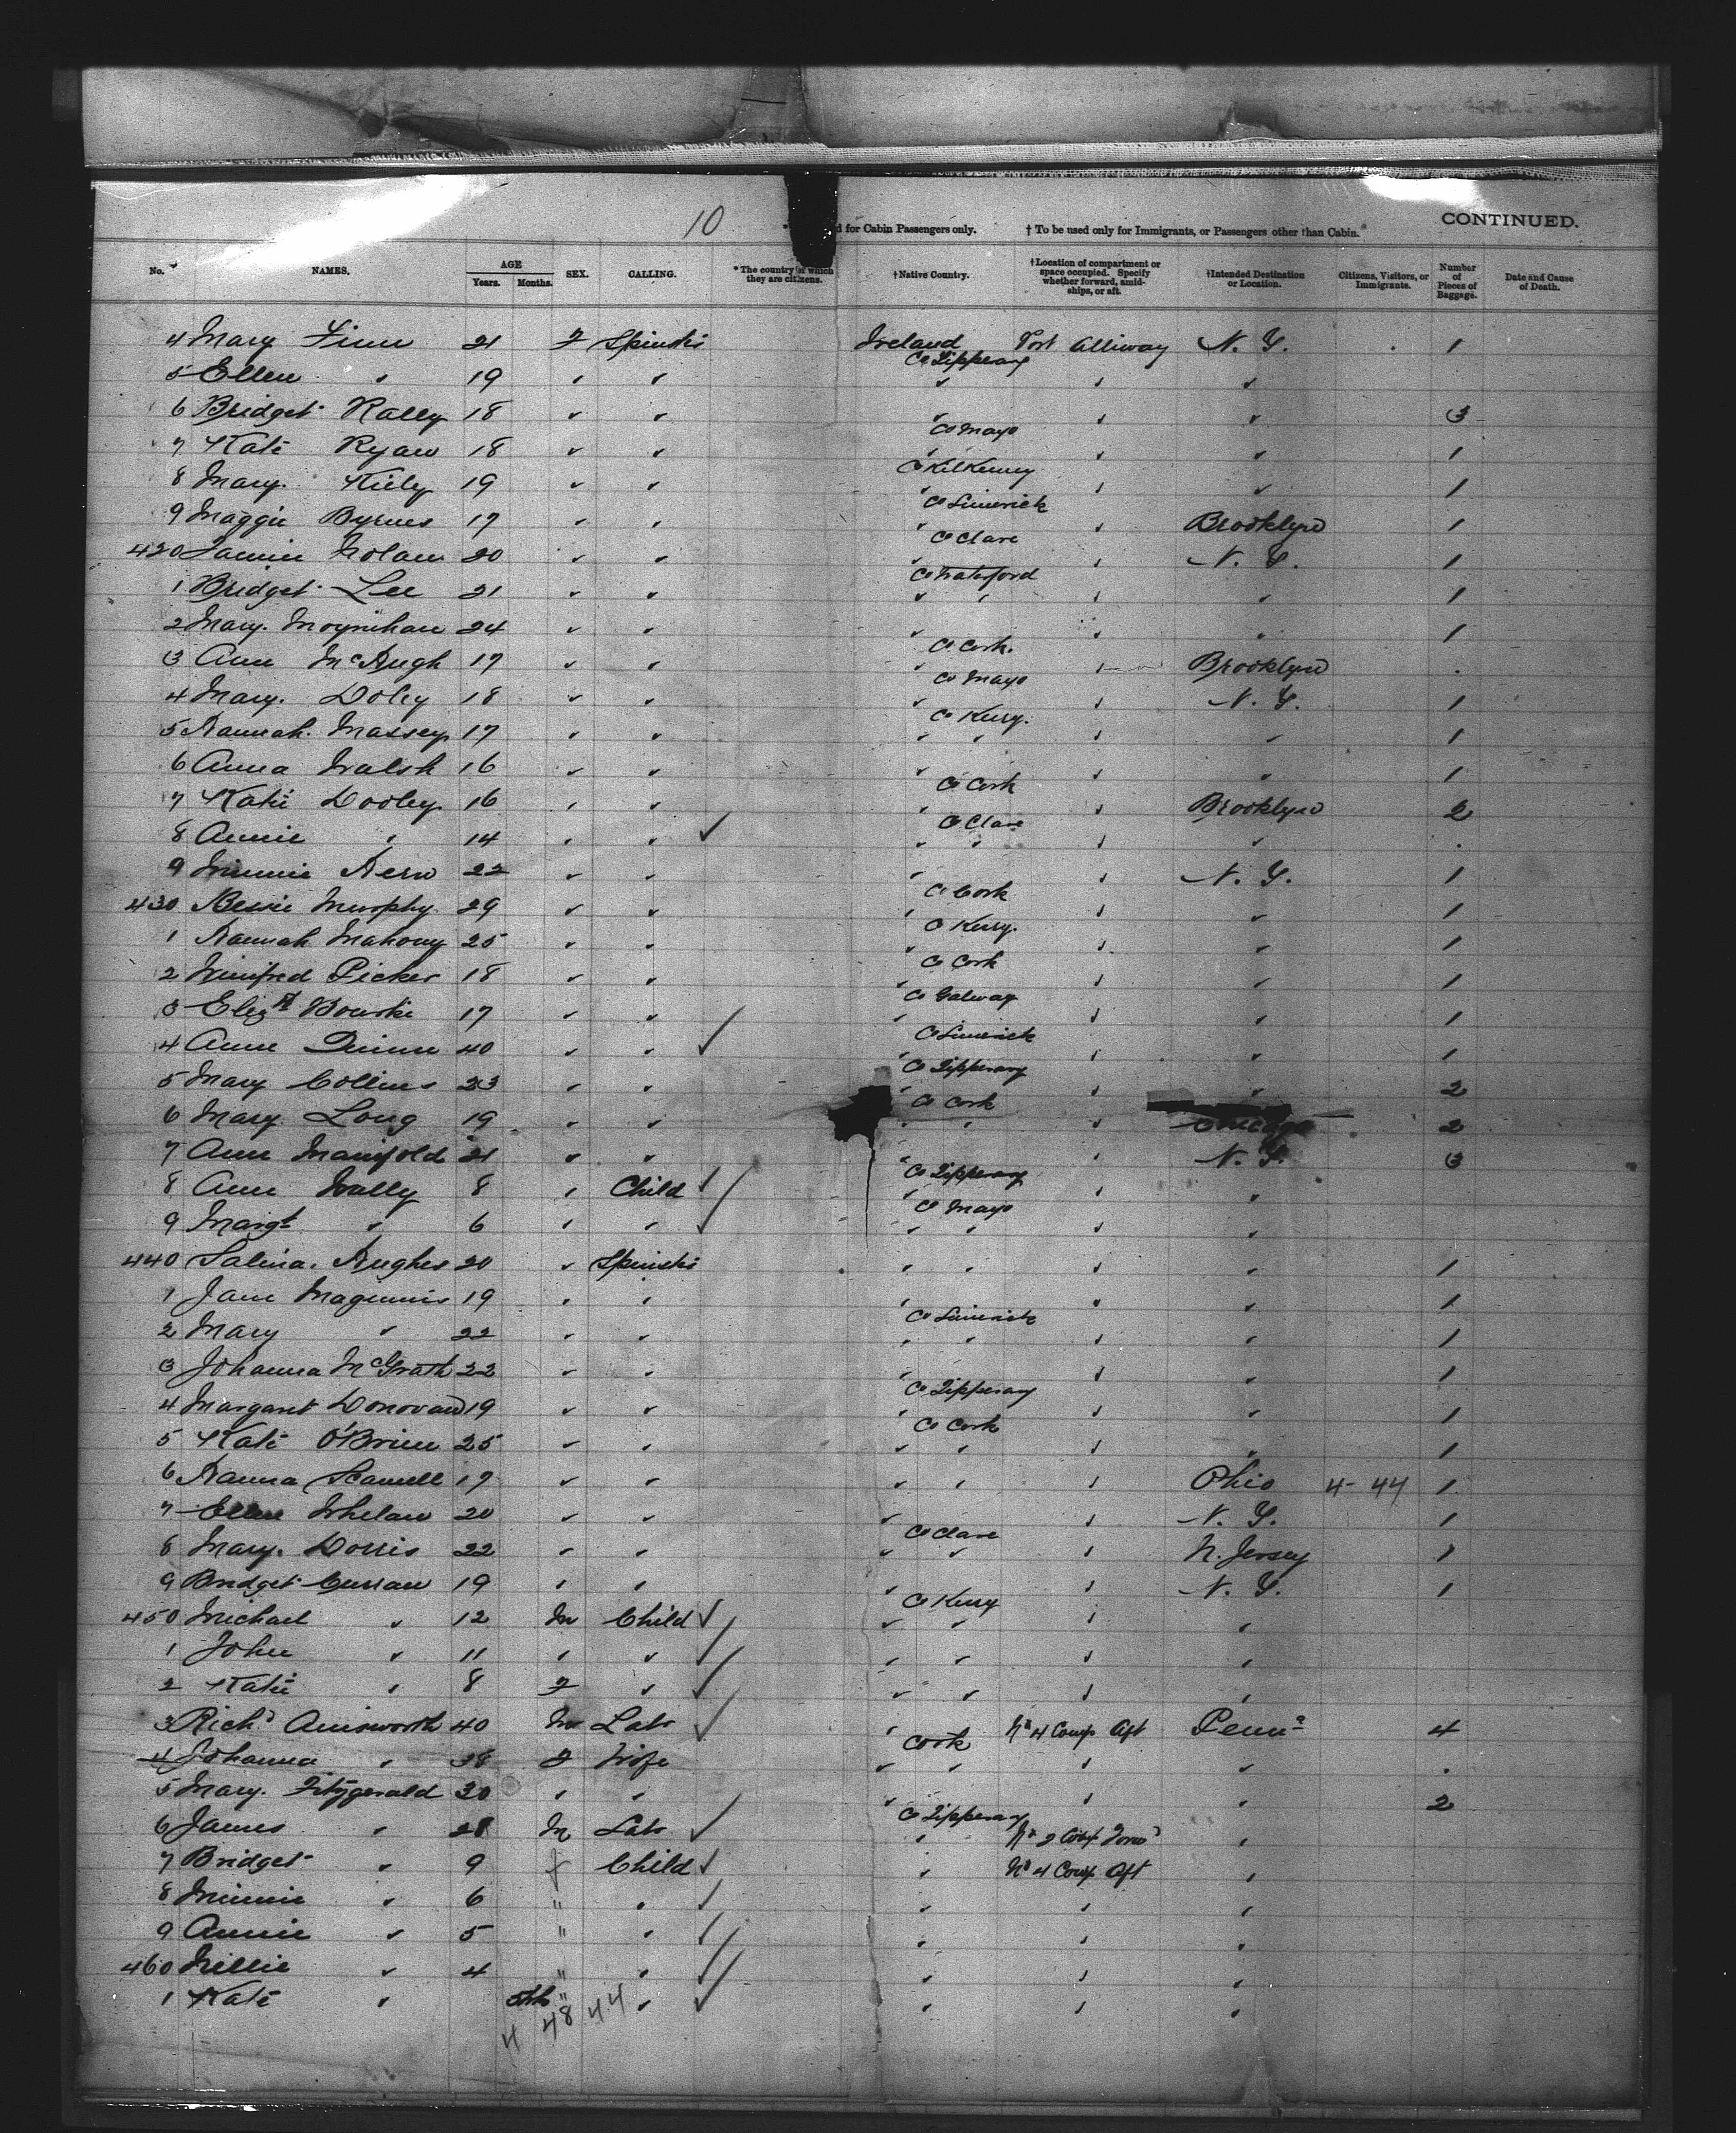 10
d for Cabin Passengers only. † To be used only for Immigrants, or Passengers other than Cabin. CONTINUED.
No. NAMES. AGE Years. Months. SEX. CALLING. *The country of which they are citizens. †Native Country. †Location of compartment or space occupied. Specify whether forward, amidships, or aft. †Intended Destination or Location. Citizens, Visitors, or Immigrants. Number of Pieces of Baggage. Date and Cause of Death.
4 Mary Finn 21 F Spinstr Ireland Co Tipperary Port Alliway N. Y. 1
5 Ellen " 19 " " " " "
6 Bridget Rally 18 " " " Co Mayo " " 3
7 Kate Ryan 18 " " " Co Kilkenny " " 1
8 Mary Kiely 19 " " " Co Limerick " " 1
9 Maggie Byrnes 17 " " " Co Clare " Brooklyn 1
420 Nolan 20 " " " Co Waterford " N. Y. 1
1 Bridget Lee 21 " " " " " " 1
2 Mary Moynihan 24 " " " Co Cork " " 1
3 Ann McHugh 17 " " " Co Mayo " Brooklyn .
4 Mary Doley 18 " " " Co Kerry " N. Y. 1
5 Hannah Massey 17 " " " " " " 1
6 Anna Walsh 16 " " " Co Cork " " 1
7 Katie Dooley 16 " " " Co Clare " Brooklyn 2
8 Annie " 14 " " ✓ " " " " .
9 Minnie Hern 22 " " " Co Cork " N. Y. 1
430 Bessie Murphy 29 " " " Co Kerry " " 1
1 Hannah Mahony 25 " " " Co Cork " " 1
2 Winifred Picker 18 " " " Co Galway " " 1
3 Elizth Bourke 17 " " " Co Limerick " " 1
4 Anne Quinn 40 " " ✓ " Co Tipperary " " 1
5 Mary Collins 23 " " " Co Cork " " 2
6 Mary Long 19 " " " " " Chicago 2
7 Ann Manifold 21 " " " Co Tipperary " N. Y. 3
8 Ann Wally 8 " Child ✓ " Co Mayo " "
9 Margt " 6 " " ✓ " " " "
440 Salina Hughes 20 " Spinstr " " " " 1
1 Jane Maginnis 19 " " " Co Limerick " " 1
2 Mary " 22 " " " " " " 1
3 Johanna McGrath 22 " " " Co Tipperary " " 1
4 Margaret Donovan 19 " " " Co Cork " " 1
5 Kate O'Brien 25 " " " " " " 1
6 Hanna Scannell 19 " " " " " Ohio 4-44 1
7 Ellen Whelan 20 " " " Co Clare " N. Y. 1
8 Mary Dorris 22 " " " " " N. Jersey 1
9 Bridget Curran 19 " " " Co Kerry " N. Y. 1
450 Michael " 12 M Child ✓ " " " "
1 John " 11 " " ✓ " " " "
2 Katie " 8 F " ✓ " " " "
3 Richd Ainsworth 40 M Labr ✓ " Cork No 4 Comp Aft Penna 4
4 Johanna " 38 F Wife " " " " .
5 Mary Fitzgerald 30 " " " Co Tipperary " " 2
6 James " 28 M Labr ✓ " No 2 Forwd "
7 Bridget " 9 f Child ✓ " No 4 Comp Aft "
8 Minnie " 6 " " ✓ " " "
9 Annie " 5 " " ✓ " " "
460 Nellie " 4 " " ✓ " " "
1 Kate " " " ✓ " " "
4 48 44